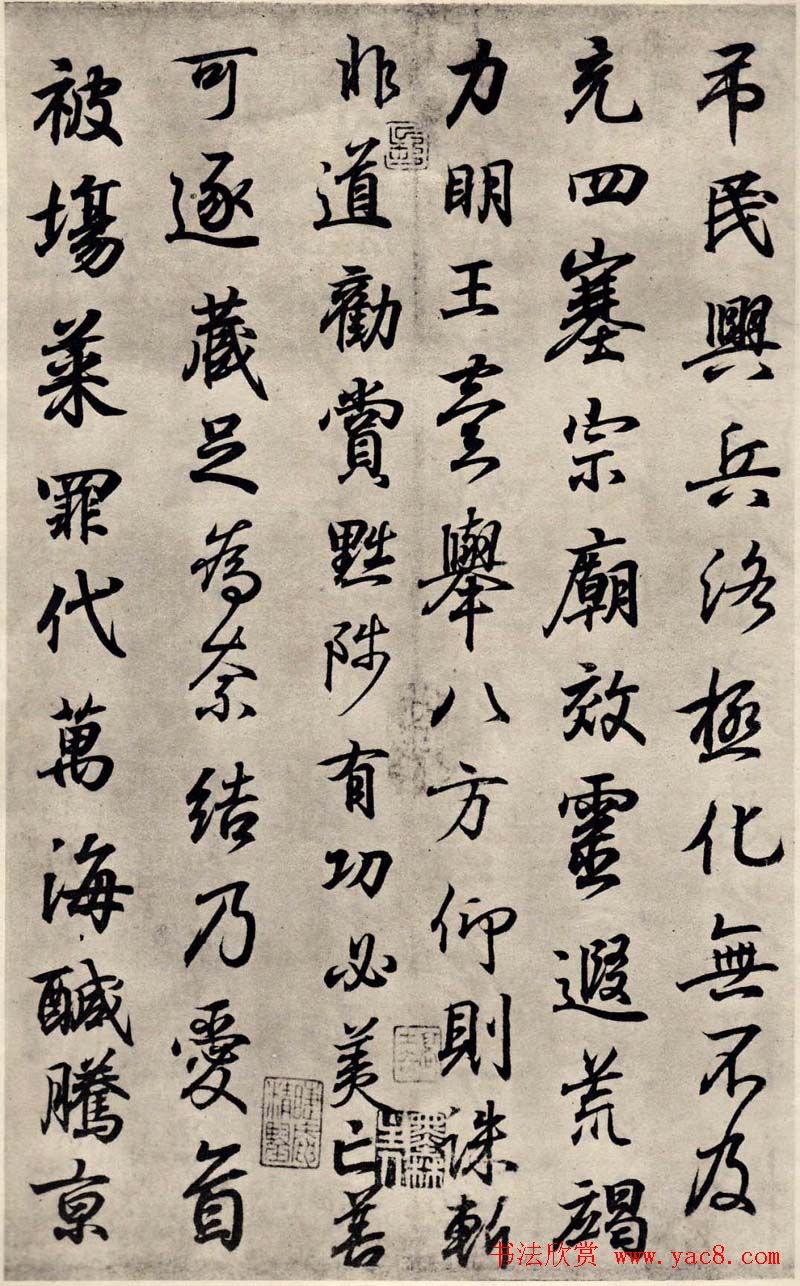 吊民興兵洛極化無不及
充四塞宗廟效靈遐荒竭
力明王壹舉八方仰則誅斬
非道勸賞黜陟有功必美亡善
可逐藏足為奈結乃愛首
被場菜罪代萬海鹹騰京
书法欣赏 www.yac8.com